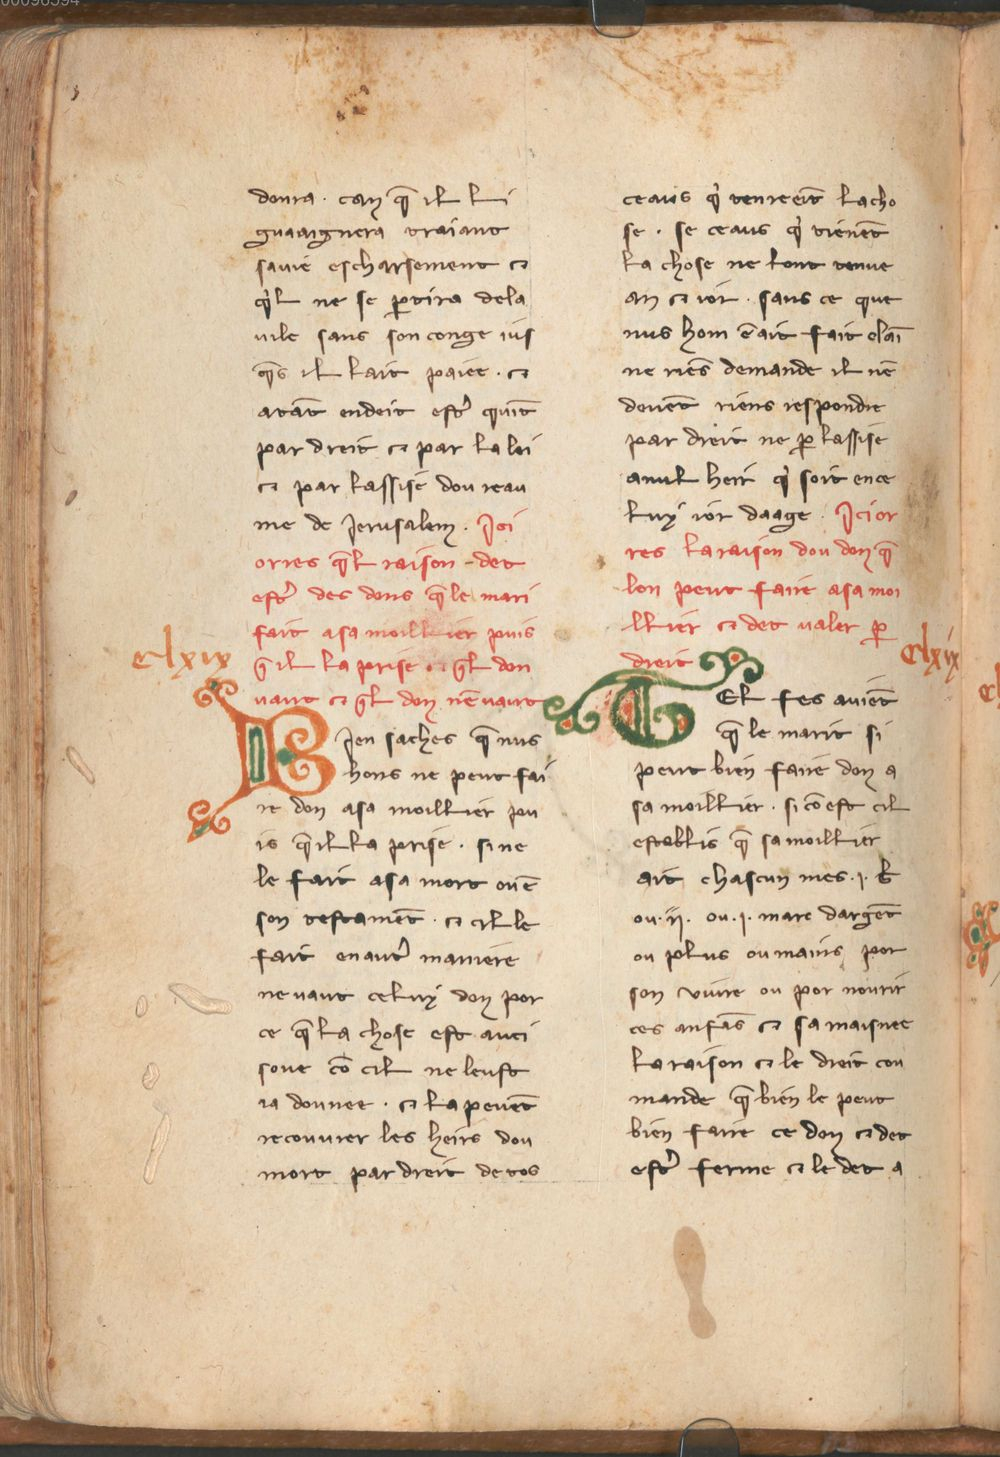 donra · can q̃ il li
guaaignera traiant
sauie escharsement ⁊
q̉l ne se ꝑtira dela
uile sans son conge ius
q̃s il lait paiee · ⁊
atãt endeit estr̉ quit̃
par dreit ⁊ par la lei
⁊ par lassise dou reau
me de Jerusalem · Ici
orres q̃l raison det
estr̉ des dons q̃ le mari
fait asa moillier puis
q̃ il la prise ⁊ q̃l don
uaut ⁊ q̃l don nẽ uaut
clxix
Bien saches q̃ nus
hons ne peut fai
re don asa moillier pu
is q̃ il la prise · si ne
le fait asa mort ou ẽ
son testamẽt · ⁊ cil le
fait en autr̉ maniere
ne uaut celuy don por
ce q̃ la chose est auci
soue cõ cil ne leust
ia donnee · ⁊ la peuẽt
recouurer les heirs dou
mort par dreit de tos
ceaus q̉ tenreeit̃ la cho
se · se ceaus q̉ tienẽt
la chose ne lont tenue
an ⁊ ior · sans ce que
nus hom ẽ ait fait claĩ
ne riẽs demande il nẽ
deuẽt riens respondre
par dreit ne ꝑ lassise
a nul heir q̉ soit en ce
luy ior daage · Ici or
res la raison dou don q̃
lon peut faire asa moi
llier ⁊ det ualer ꝑ
dreit
clxix
Tel fes auiẽt
q̃ le marit si
peut bien faire don a
sa moillier · si cõ est cil
establis q̃ sa moillier
ait chascun mes · i · b̃
ou · ii · ou · i · marc dargẽt
ou plus ou mains por
son uiure ou por nourir
ces anfãs ⁊ sa maisnee
la raison ⁊ le dreit cou
mande q̃ bien le peut
bien faire ce don ⁊ det
estr̉ ferme ⁊ le det a